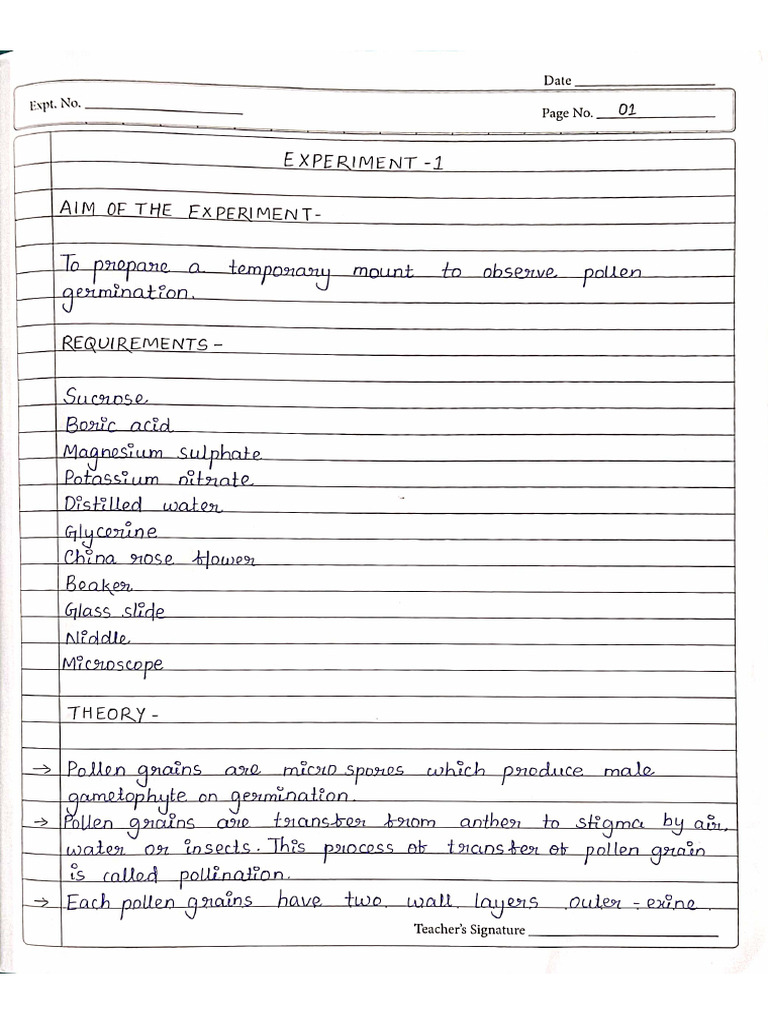 Date
Expt. No.
Page No. 01
EXPERIMENT-1
AIM OF THE EXPERIMENT-
To prepare a temporary mount to observe pollen
germination.
REQUIREMENTS-
Sucrose
Boric acid
Magnesium sulphate
Potassium nitrate
Distilled water
Glycerine
China rose flower
Beaker
Glass slide
Niddle
Microscope
THEORY-
→ Pollen grains are micro spores which produce male
gametophyte on germination.
→ Pollen grains are transfer from anther to stigma by air,
water or insects. This process of transfer of pollen grain
is called pollination.
→ Each pollen grains have two wall layers outer-exine
Teacher's Signature